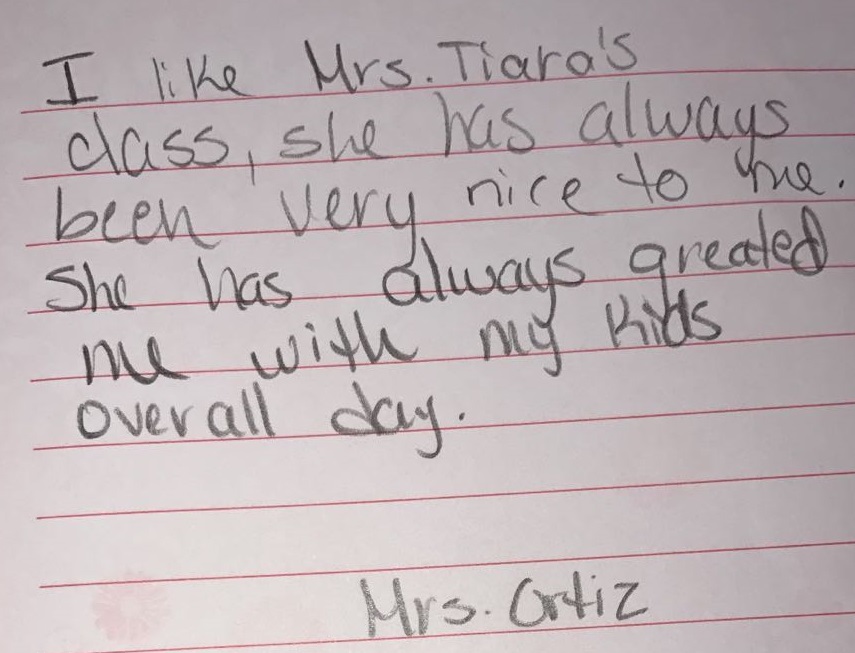 I like Mrs. Tiara's
class, she has always
been very nice to me.
She has always greated
me with my kids
overall day.
Mrs. Ortiz